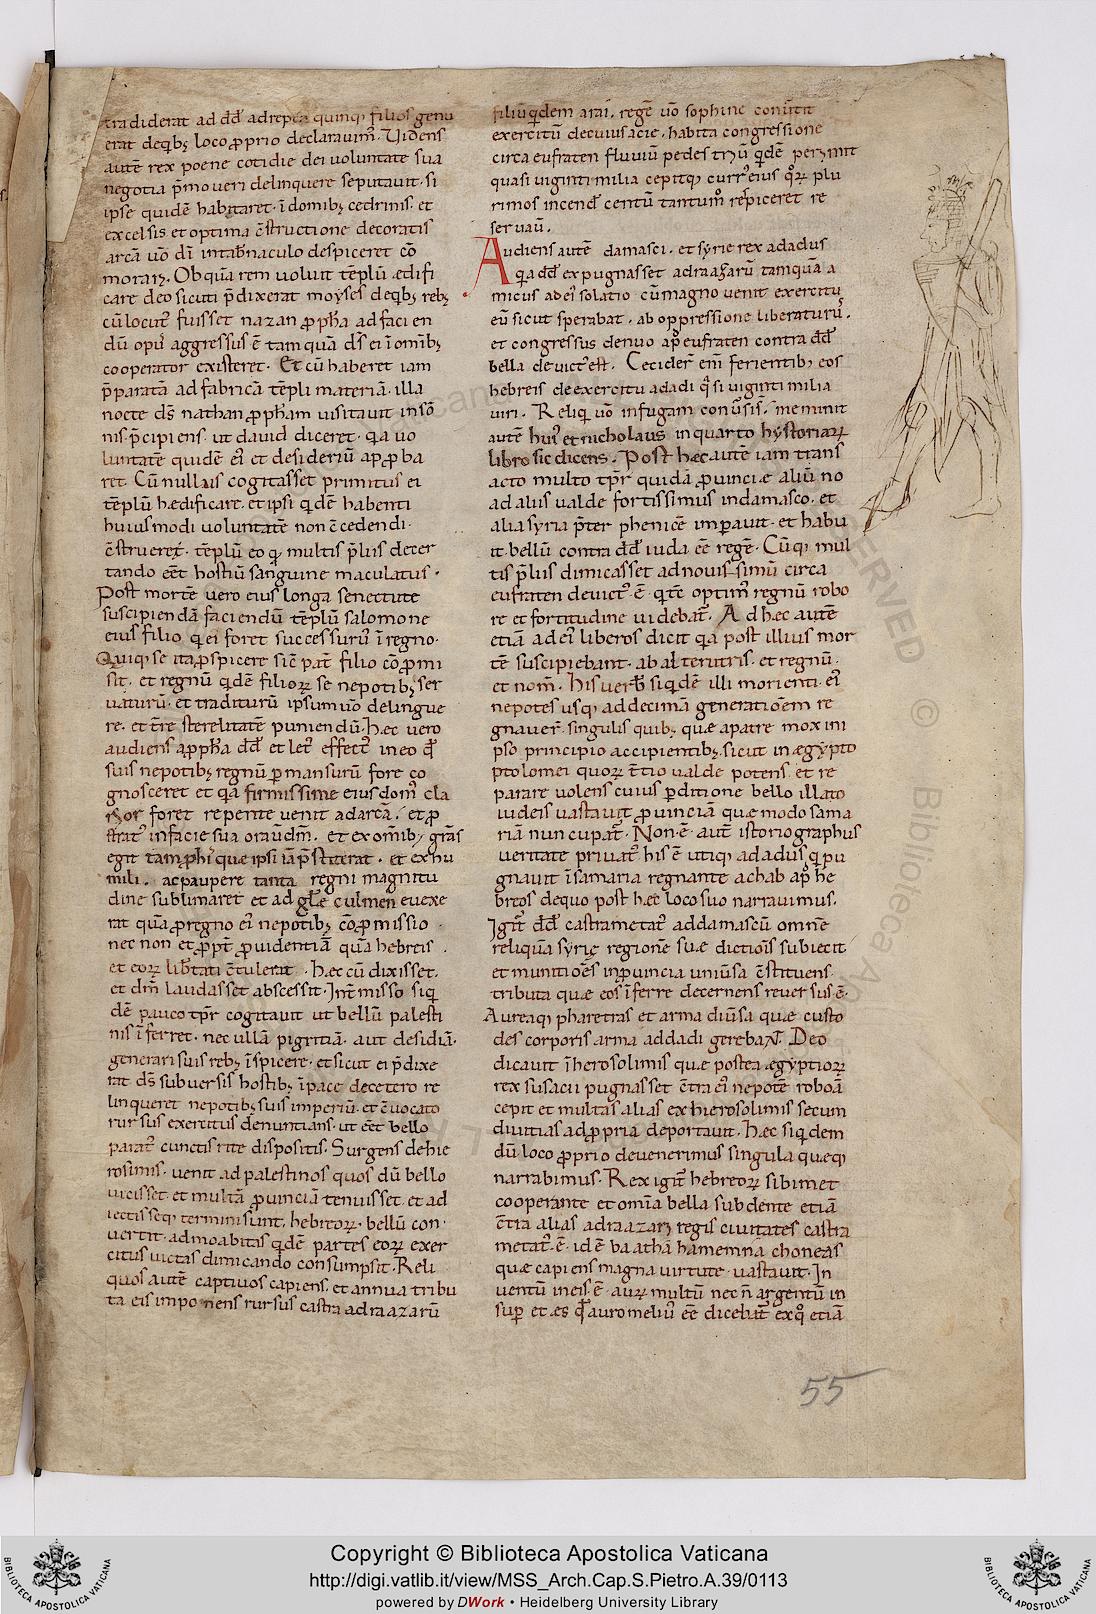 tradiderat ad dd̄ adrepta quinq; filios genu
erat deqb; loco proprio declaravim᾽. Videns
autē rex poene cotidie dei voluntate sua
negotia p̄moveri delinquere se putavit. si
ipse quidē habitaret. ī domib; cedrinis. et
excelsis et optima c̄structione decoratis
arcā ūo dī intab̄naculo despiceret cō
morari. Ob quā rem voluit tēplū ædifi
care deo sicuti p̄dixerat moyses deqb; reb;
cū locut᾽ fuisset nazan pp̄ha ad facien
dū op᾽ aggressus ē tamquā ds̄ ei ī omīb;
cooperator existeret. Et cū haberet iam
p̄paratā ad fabricā tēpli materiā. illa
nocte ds̄ nathan prop̄ham visitavit insō
nis p̄cipiens. ut david diceret. qa vo
luntatē quidē ei᾽ et desideriū ap proba
ret. Cū nullais cogitasset primitus ei
tēplū hædificare. et ipsi qdē habenti
huiusmodi voluntatē non ē cedendi.
c̄strueret. tēplū eo q multis p̄liis decer
tando eēt hostiū sanguine maculatus.
Post mortē vero eius longa senectute
suscipiendā faciendū tēplū salomone
eius filio q ei foret successur᾽ ī regno.
Quiq; se ita pspicere sic̄ pat̄ filio cō promi
sit. et regnū qdē filior se nepotib; ser
vaturū. et traditurū ipsum ūo delinque
re. et t̄re sterelitatē puniendū. Hæc vero
audiens a pp̄ha dd̄ et let᾽ effect᾽ in eo qd̄
suis nepotib; regnū pmansurū fore co
gnosceret et qa firmissime eius dom᾽ cla
rior foret repente venit ad arcā. et p
strat᾽ in facie sua orand dm̄. et ex omīb; grās
egit tam phi᾽ quæ ipsi iā p̄stiterat. et ex hu
mili. ac paupere tanta regni magnitu
dine sublimaret et ad gle᾽ culmen evexe
rat quā pro regno ei᾽ nepotib; cō promissio
nec non et propt̄ providentiā quā hebreis.
et eor lib̄tati c̄tulerat. Hæc cū dixisset.
et dm̄ laudasset abscessit. Int̄misso siq
dē pauco tp̄r cogitavit ut bellū palesti
nis īferret. nec ullā pigritiā. aut desidiā.
generari suis reb; īspicere. et sicut ei p̄dixe
rat ds̄ subversis hostib; ī pace decetero re
linqueret nepotib; suis imperiū. et c̄vocato
rursus exercitus denuntians. ut eēt bello
parat᾽ cunctis rite dispositis. Surgens dehie
rosimis. venit ad palestinos quos dū bello
vicisset. et multā provinciā tenuisset. et ad
iectis seq; terminis unt, hebreor. bellū con
vertit. ad moabitas qdē partes eor exer
citus victas dimicando consumpsit. Reli
quos autē captivos capiens. et annua tribu
ta eis imponens rursus castra adraazarū
filiū qdem arai. regē ūo sophine convertit
exercitū decuius acie. habita congressione
circa eufraten fluviū pedestriū qdē perimit
quasi viginti milia cepitq; curr᾽ eius qr plu
rimos incend̄ centū tantum᾽ respiceret re
servavi.
Audiens autē damasci. et syrie rex adadus
qa dd̄ expugnasset adraazarū tamquā a
micus ad ei᾽ solatio cū magno venit exercitu
eū sicut sperabat. ab oppressione liberaturū.
et congressus denuo ap᾽ eufraten contra dd̄
bella devict᾽ est. Cecider̄ eni᾽ ferientib; eos
hebreis de exercitu adadi qsi viginti milia
viri. Reliqi ūo infugam conversis. meminit
autē hui᾽ et nicholaus in quarto hystoriar
libro sic dicens. Post hæc autē iam trans
acto multo tp̄r quidā provinciæ aliū no
ad alius valde fortissimus indamasco. et
alia syria p̄ter phenicē imperavit. et habu
it bellū contra dd̄ iuda eē regē. Cūq; mul
tis p̄liis dimicasset ad novissimū circa
eufraten devict᾽ ē. q te᾽ optim᾽ regnū robo
re et fortitudine videbat̄. Ad hæc autē
etiā ad ei᾽ liberos dicit qa post illius mor
tē suscipiebant. ab alterutris. et regnū.
et nom̄. His verb̄ siqdē illi morienti. ei᾽
nepotes usq; ad decimā generationē re
gnaver̄. singulis quib; quæ apatre mox in i
pso principio accipientib; sicut in ægypto
ptolomei quor t̄tio valde potens. et re
parare volens cuius p̄ditione bello illato
iudeis vastavit provinciā quæ modo sama
riā nuncupat̄. Non ē aut̄ istoriographus
veritate privat᾽ his ē utiq; adadus q pu
gnavit īsamaria regnante achab ap᾽ he
breos de quo post hæc loco suo narravimus.
Igit̄ dd̄ castrametat᾽ ad damascū omnē
reliquā syrie regionē suæ dictiōis subiecit
et munitiōes in pvincia univ̄sa c̄stituens.
tributa quæ eos īferre decernens reversus ē.
Aureaq; pharetras et arma div̄sa quæ custo
des corporis arma addadi gerebant. Deo
dicavit īherosolimis quæ postea ægyptior
rex susacii pugnasset c̄tra ei᾽ nepotē roboā
cepit et multas alias ex hierosolimis secum
divitias ad propria deportavit. Hæc siqdem
dū loco proprio devenerimus singula quæq;
narrabimus. Rex igit̄ hebreor sibimet
cooperante et omīa bella subdente etiā
c̄tra alias adraazari regis civitates castra
metat᾽ ē. id ē baathā hamemna choneas
quæ capiens magna virtute vastavit. In
ventū in eis. ē. aur multū nec n̄ argentū in
sup̄ et æs qd̄ auro meliu᾽ eē dicebat̄ ex q etiā
55
Copyright © Biblioteca Apostolica Vaticana
http://digi.vatlib.it/view/MSS_Arch.Cap.S.Pietro.A.39/0113
powered by DWork • Heidelberg University Library